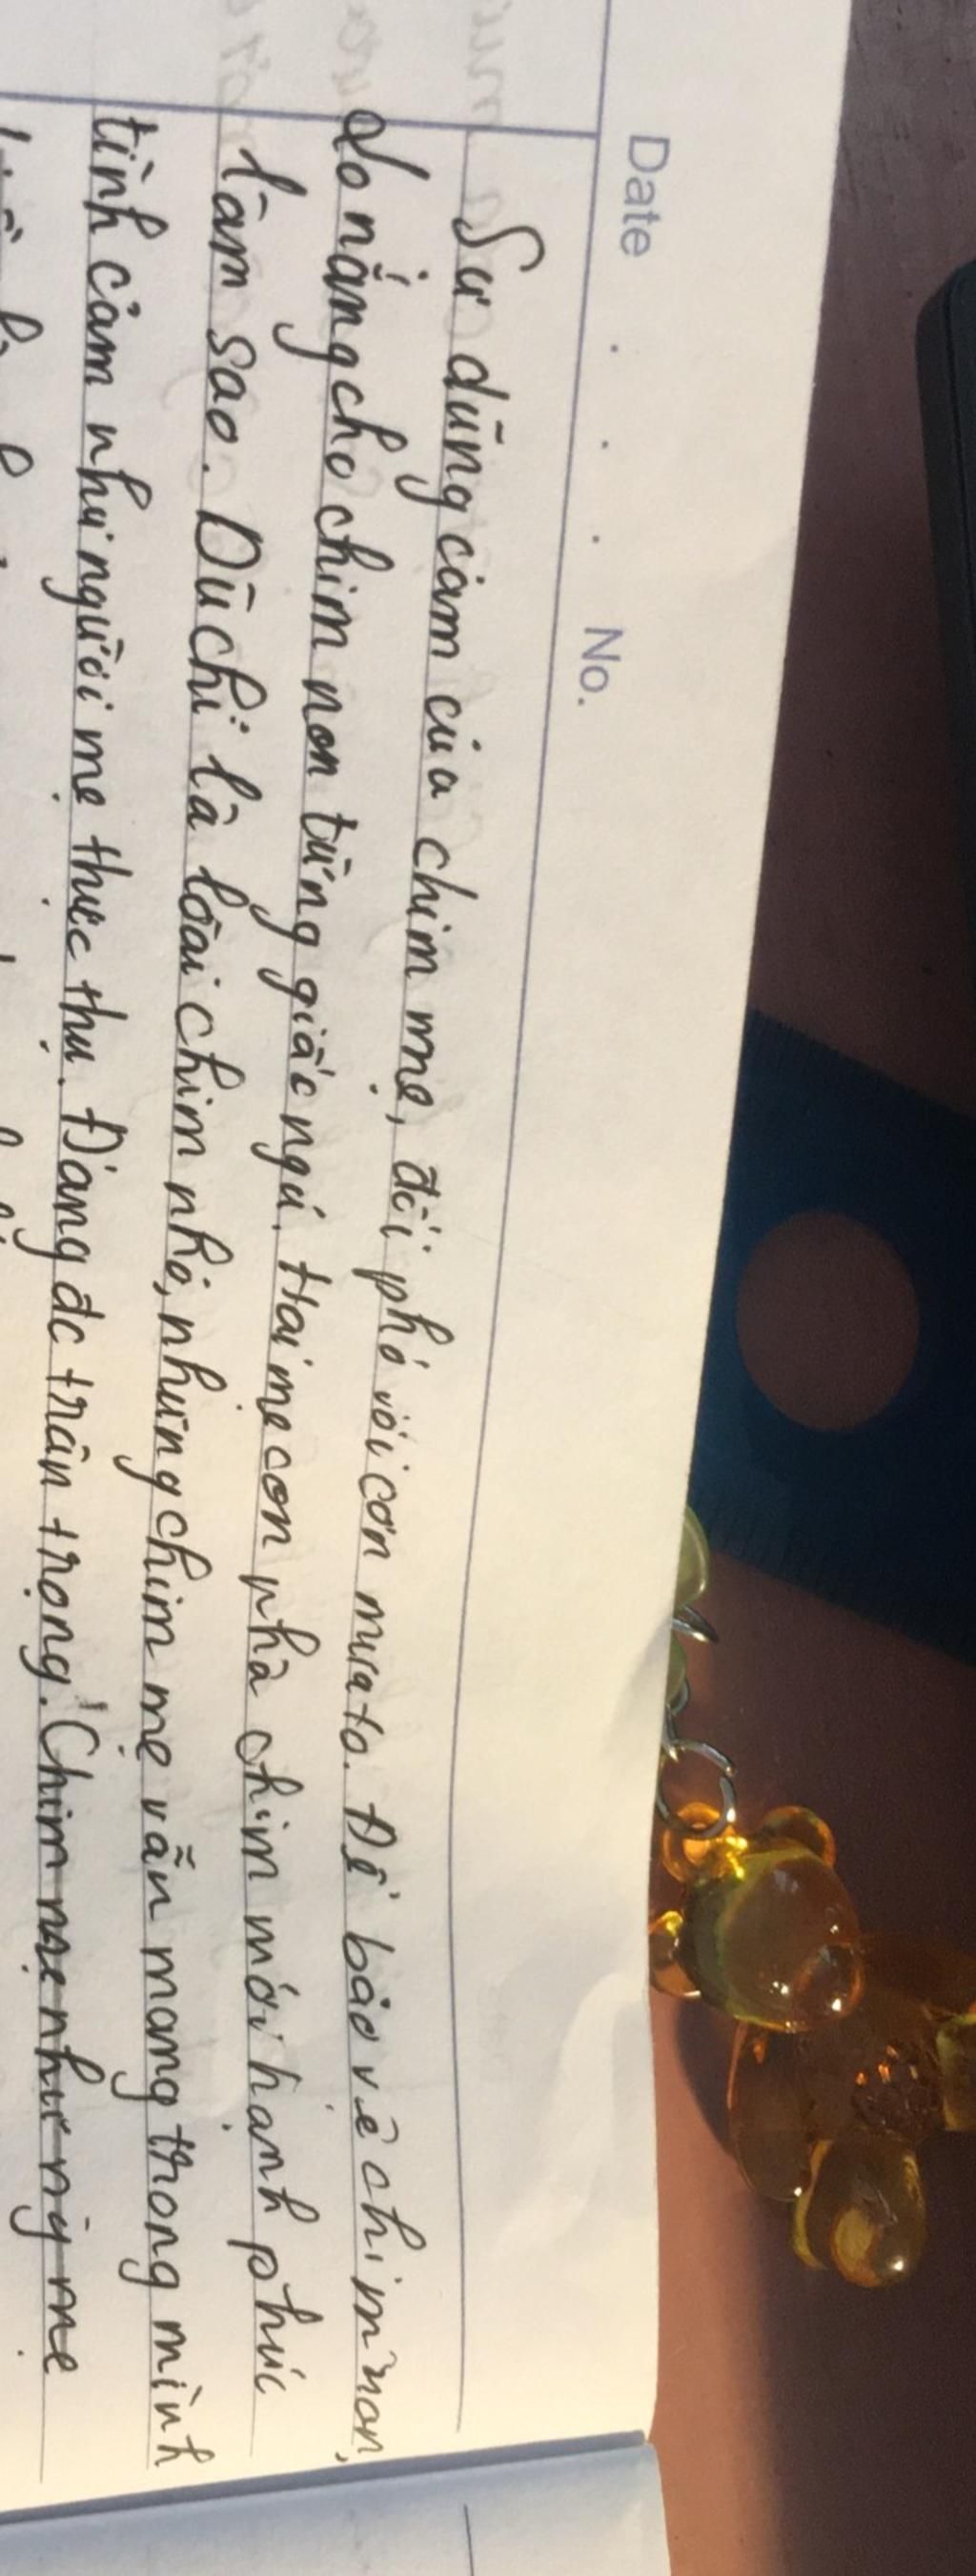 Date . . . No.
Sự dũng cảm của chim mẹ, đối phó với cơn mưa to. Để bảo vệ chim non,
lo nắng cho chim non từng giấc ngủ. Hai mẹ con nhà chim mới hạnh phúc
làm sao. Dù chỉ là loài chim nhỏ, nhưng chim mẹ vẫn mang trong mình
tình cảm như người mẹ thực thụ. Đáng đc trân trọng. Chim mẹ như ng mẹ